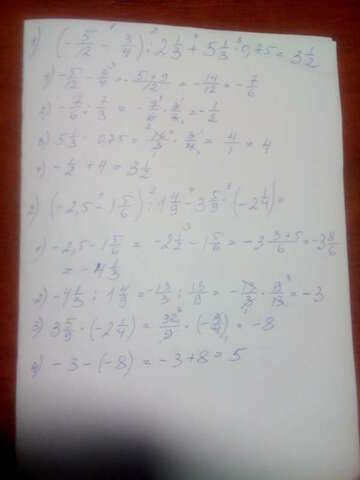 1) (-5/12 - 3/4) : 2 1/3 + 5 1/3 · 0,75 = 3 1/2
1) -5/12 - 3/4 = -(5+9)/12 = -14/12 = -7/6
2) -7/6 : 7/3 = -7/6 · 3/7 = -1/2
3) 5 1/3 · 0,75 = 16/3 · 3/4 = 4/1 = 4
4) -1/2 + 4 = 3 1/2
2) (-2,5 - 1 5/6) : 1 4/9 - 3 5/9 · (-2 1/4) =
1) -2,5 - 1 5/6 = -2 1/2 - 1 5/6 = -3 (3+5)/6 = -3 8/6
= -4 1/3
2) -4 1/3 : 1 4/9 = -13/3 : 13/9 = -13/3 · 9/13 = -3
3) 3 5/9 · (-2 1/4) = 32/9 · (-9/4) = -8
4) -3 - (-8) = -3 + 8 = 5